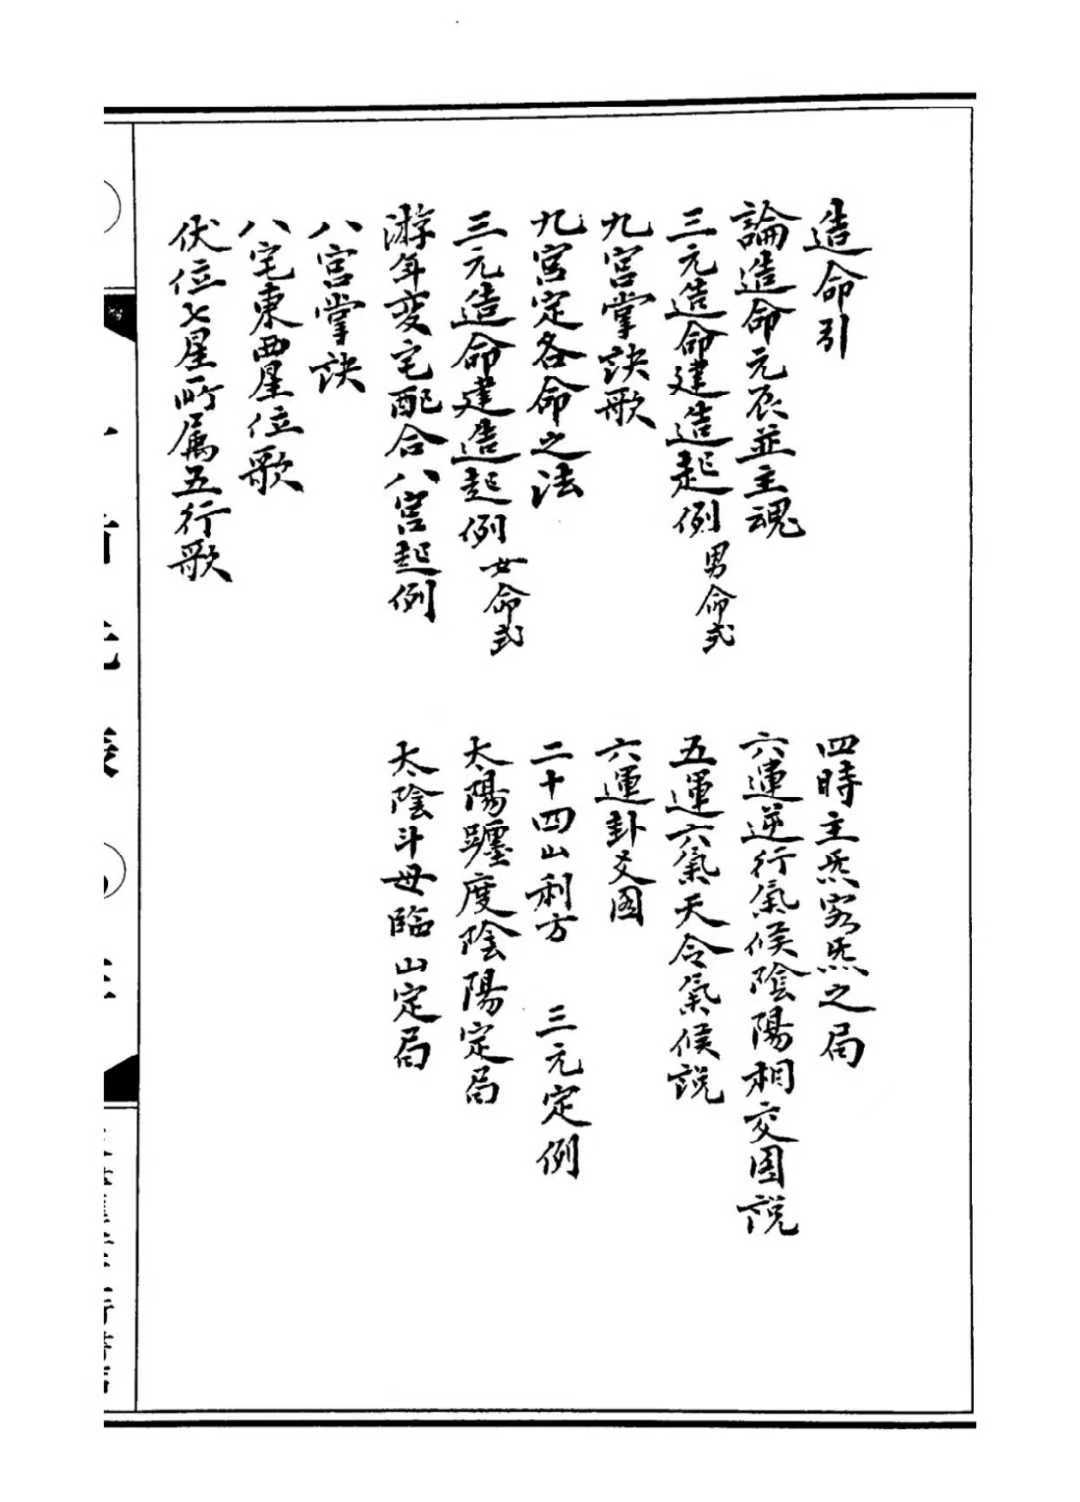 造命引
論造命元辰並主魂
三元造命建造起例男命式
九宮掌訣歌
九宮定各命之法
三元造命建造起例女命式
游年变宅配合八宮起例
八宮掌訣
八宅東西星位歌
伏位七星所属五行歌
四時主炁客炁之局
六運逆行氣候陰陽相交图說
五運六氣天令氣候說
六運卦爻图
二十四山利方 三元定例
太陽躔度陰陽定局
太陰斗母臨山定局